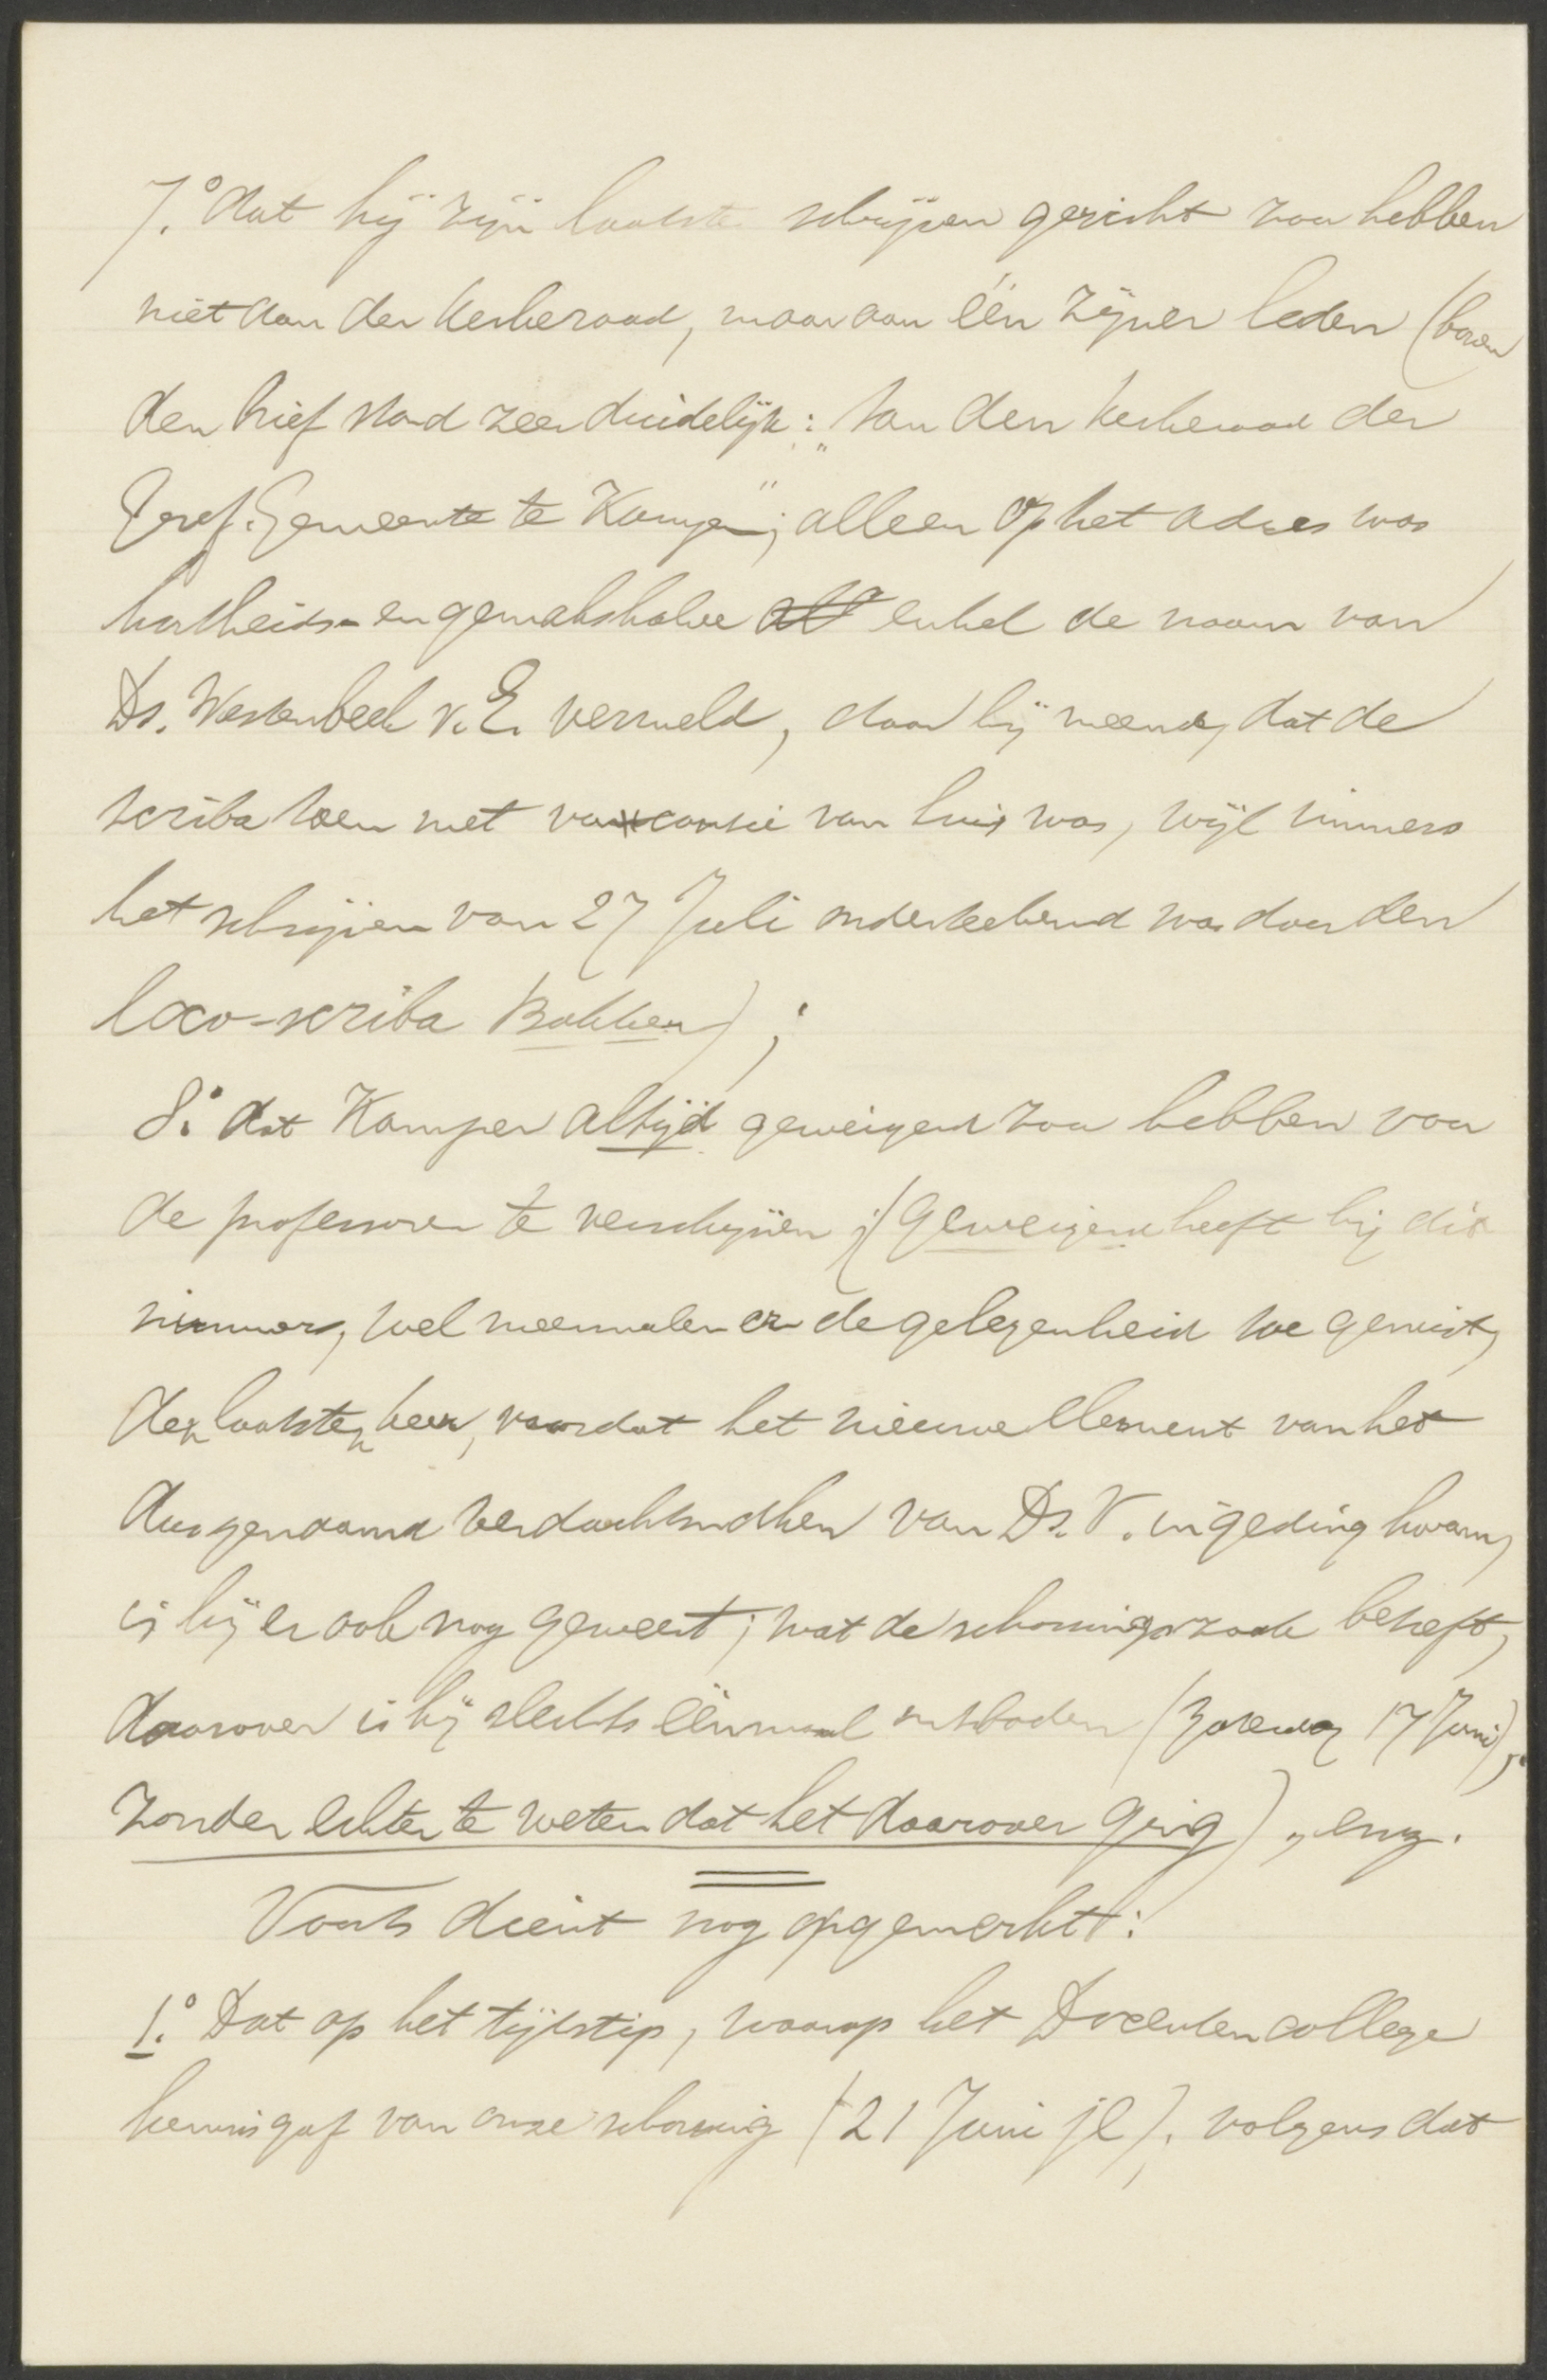 7.° dat hij zijn laatste schrijven gericht zou hebben
niet aan den Kerkeraad, maar aan één zijner leden (boven
den brief stond zeer duidelijk: „Aan den Kerkeraad der
Geref. Gemeente te Kampen"; alleen op het adres was
kortheids- en gemakshalve enkel de naam van
Ds. Westerbeek v. E. vermeld, daar hij meende, dat de
scriba toen met vacantie van huis was, wijl immers
het schrijven van 27 Juli onderteekend was door den
loco-scriba Bakker);
8.° dat Kamper altijd geweigerd zou hebben voor
de professoren te verschijnen; (geweigerd heeft hij dit
nimmer, wel meermalen er de gelegenheid toe gemist,
den laatsten keer, voordat het nieuwe element van het
dusgenaamd verdachtmaken van Ds. V. in geding kwam,
is hij er ook nog geweest; wat de schorsingszaak betreft,
daarover is hij slechts éénmaal ontboden (Zaterdag 17 Juni),
zonder echter te weten dat het daarover ging), enz.
Voorts dient nog opgemerkt:
1.° Dat op het tijdstip, waarop het Docentencollege
kennis gaf van onze schorsing (21 Juni jl.), volgens dat